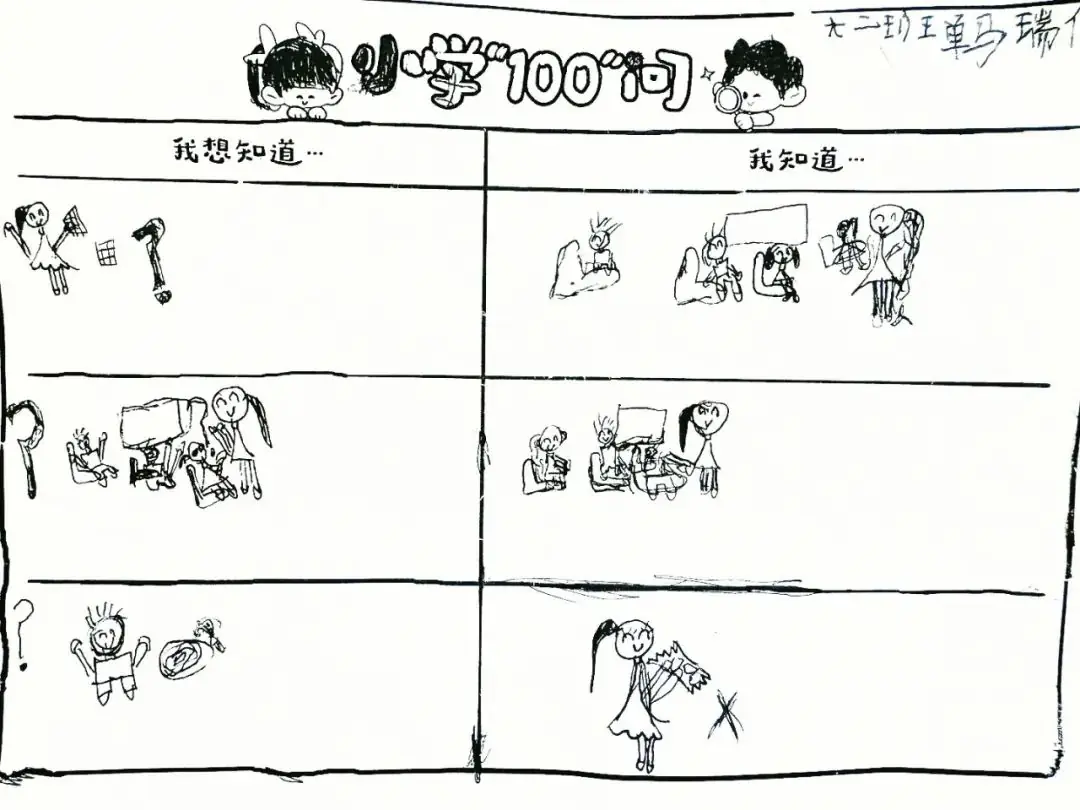 大二班王单马瑞
小学“100”问
我想知道…
我知道…
?
?
?